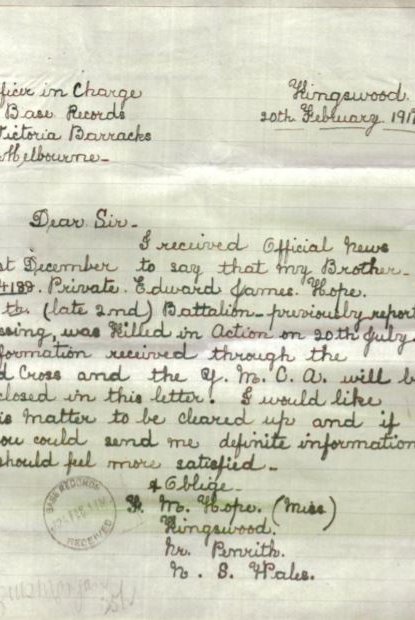 ficer in Charge
Base Records
Victoria Barracks
Melbourne-
Kingswood.
20th February 191
Dear Sir-
I received Official News
st December to say that my Brother-
4189. Private Edward James Hope.
th (late 2nd) Battalion- previously report
ssing, was Killed in Action on 20th July.
formation received through the
d Cross and the Y. M. C. A. will b
closed in this letter. I would like
is matter to be cleared up and if
ou could send me definite information
should feel more satisfied-
& Oblige-
M. Hope. (Miss)
Kingswood.
Nr. Penrith.
N. S. Wales.
BASE RECORDS
RECEIVED